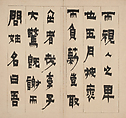 而視人之卑
五月披裘
而負薪豈取
金者哉季子
大驚既謝而
問姓名曰吾